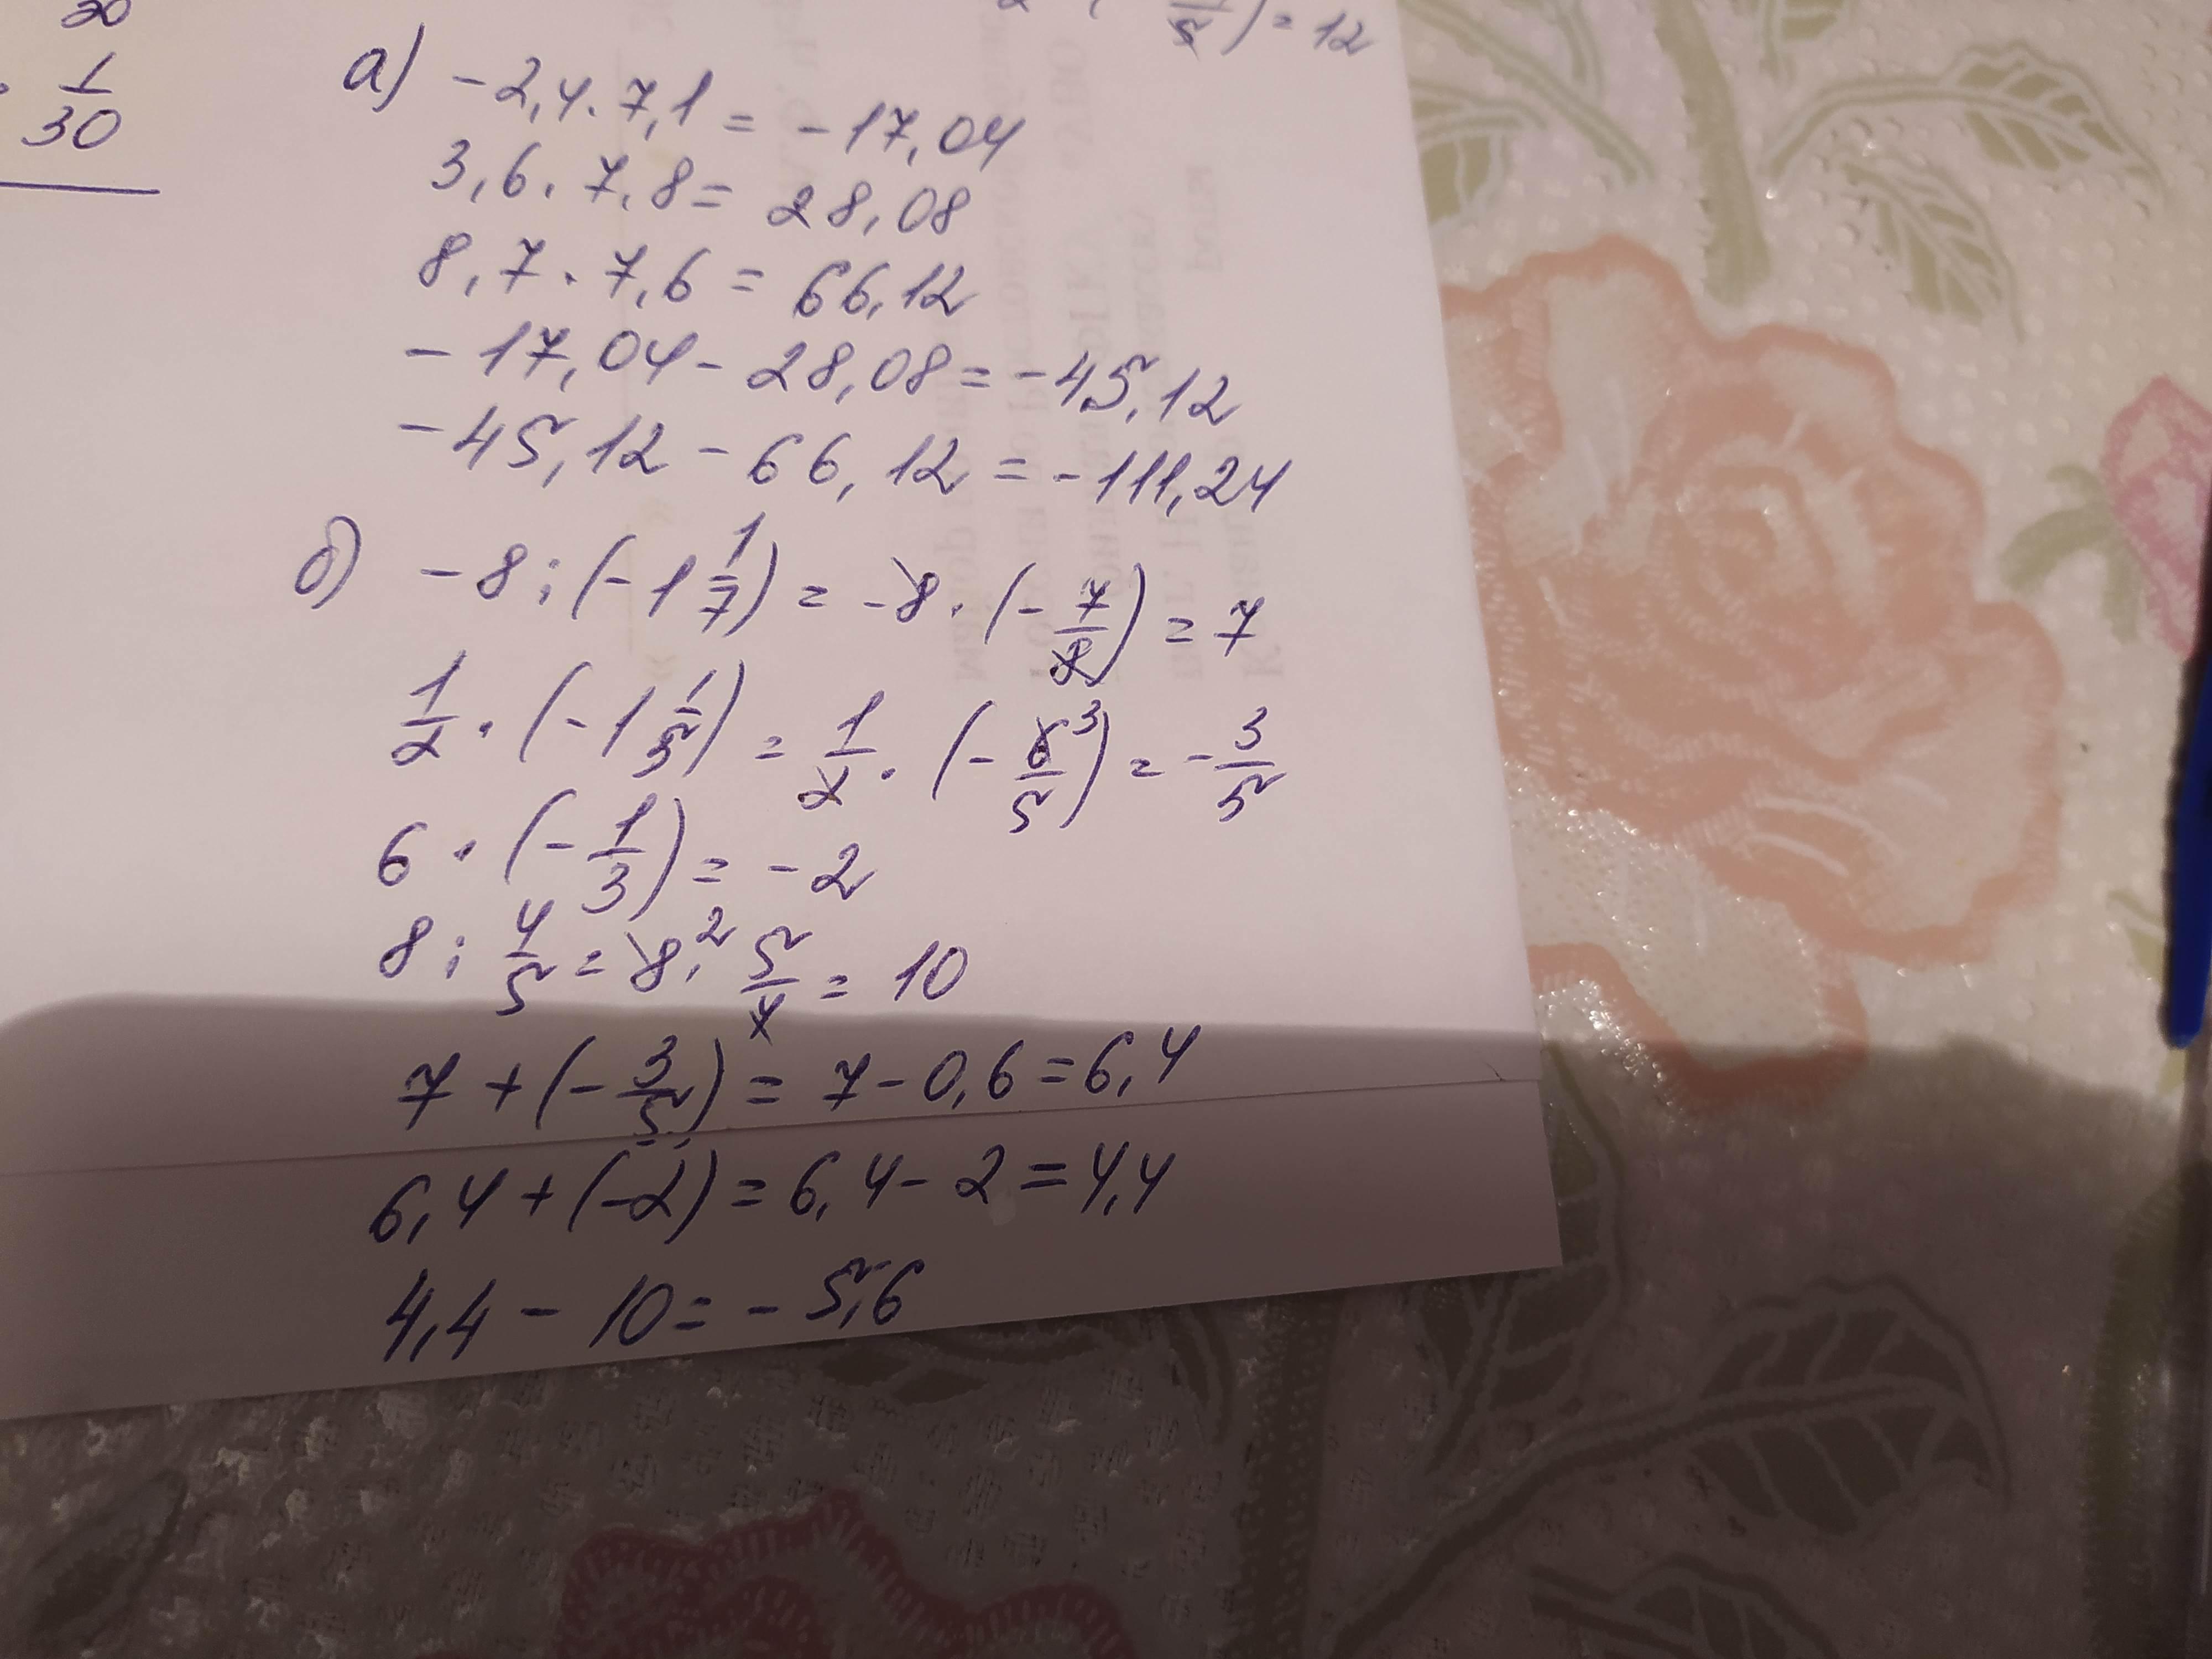 20
· 1/30
5) = 12
а) -2,4 · 7,1 = -17,04
3,6 · 7,8 = 28,08
8,7 · 7,6 = 66,12
-17,04 - 28,08 = -45,12
-45,12 - 66,12 = -111,24
б) -8 : (-1 1/7) = -8 · (-7/8) = 7
1/2 · (-1 1/5) = 1/2 · (-6/5 3) = -3/5
6 · (-1/3) = -2
8 : 4/5 = 8 2 · 5/4 = 10
7 + (-3/5) = 7 - 0,6 = 6,4
6,4 + (-2) = 6,4 - 2 = 4,4
4,4 - 10 = -5,6